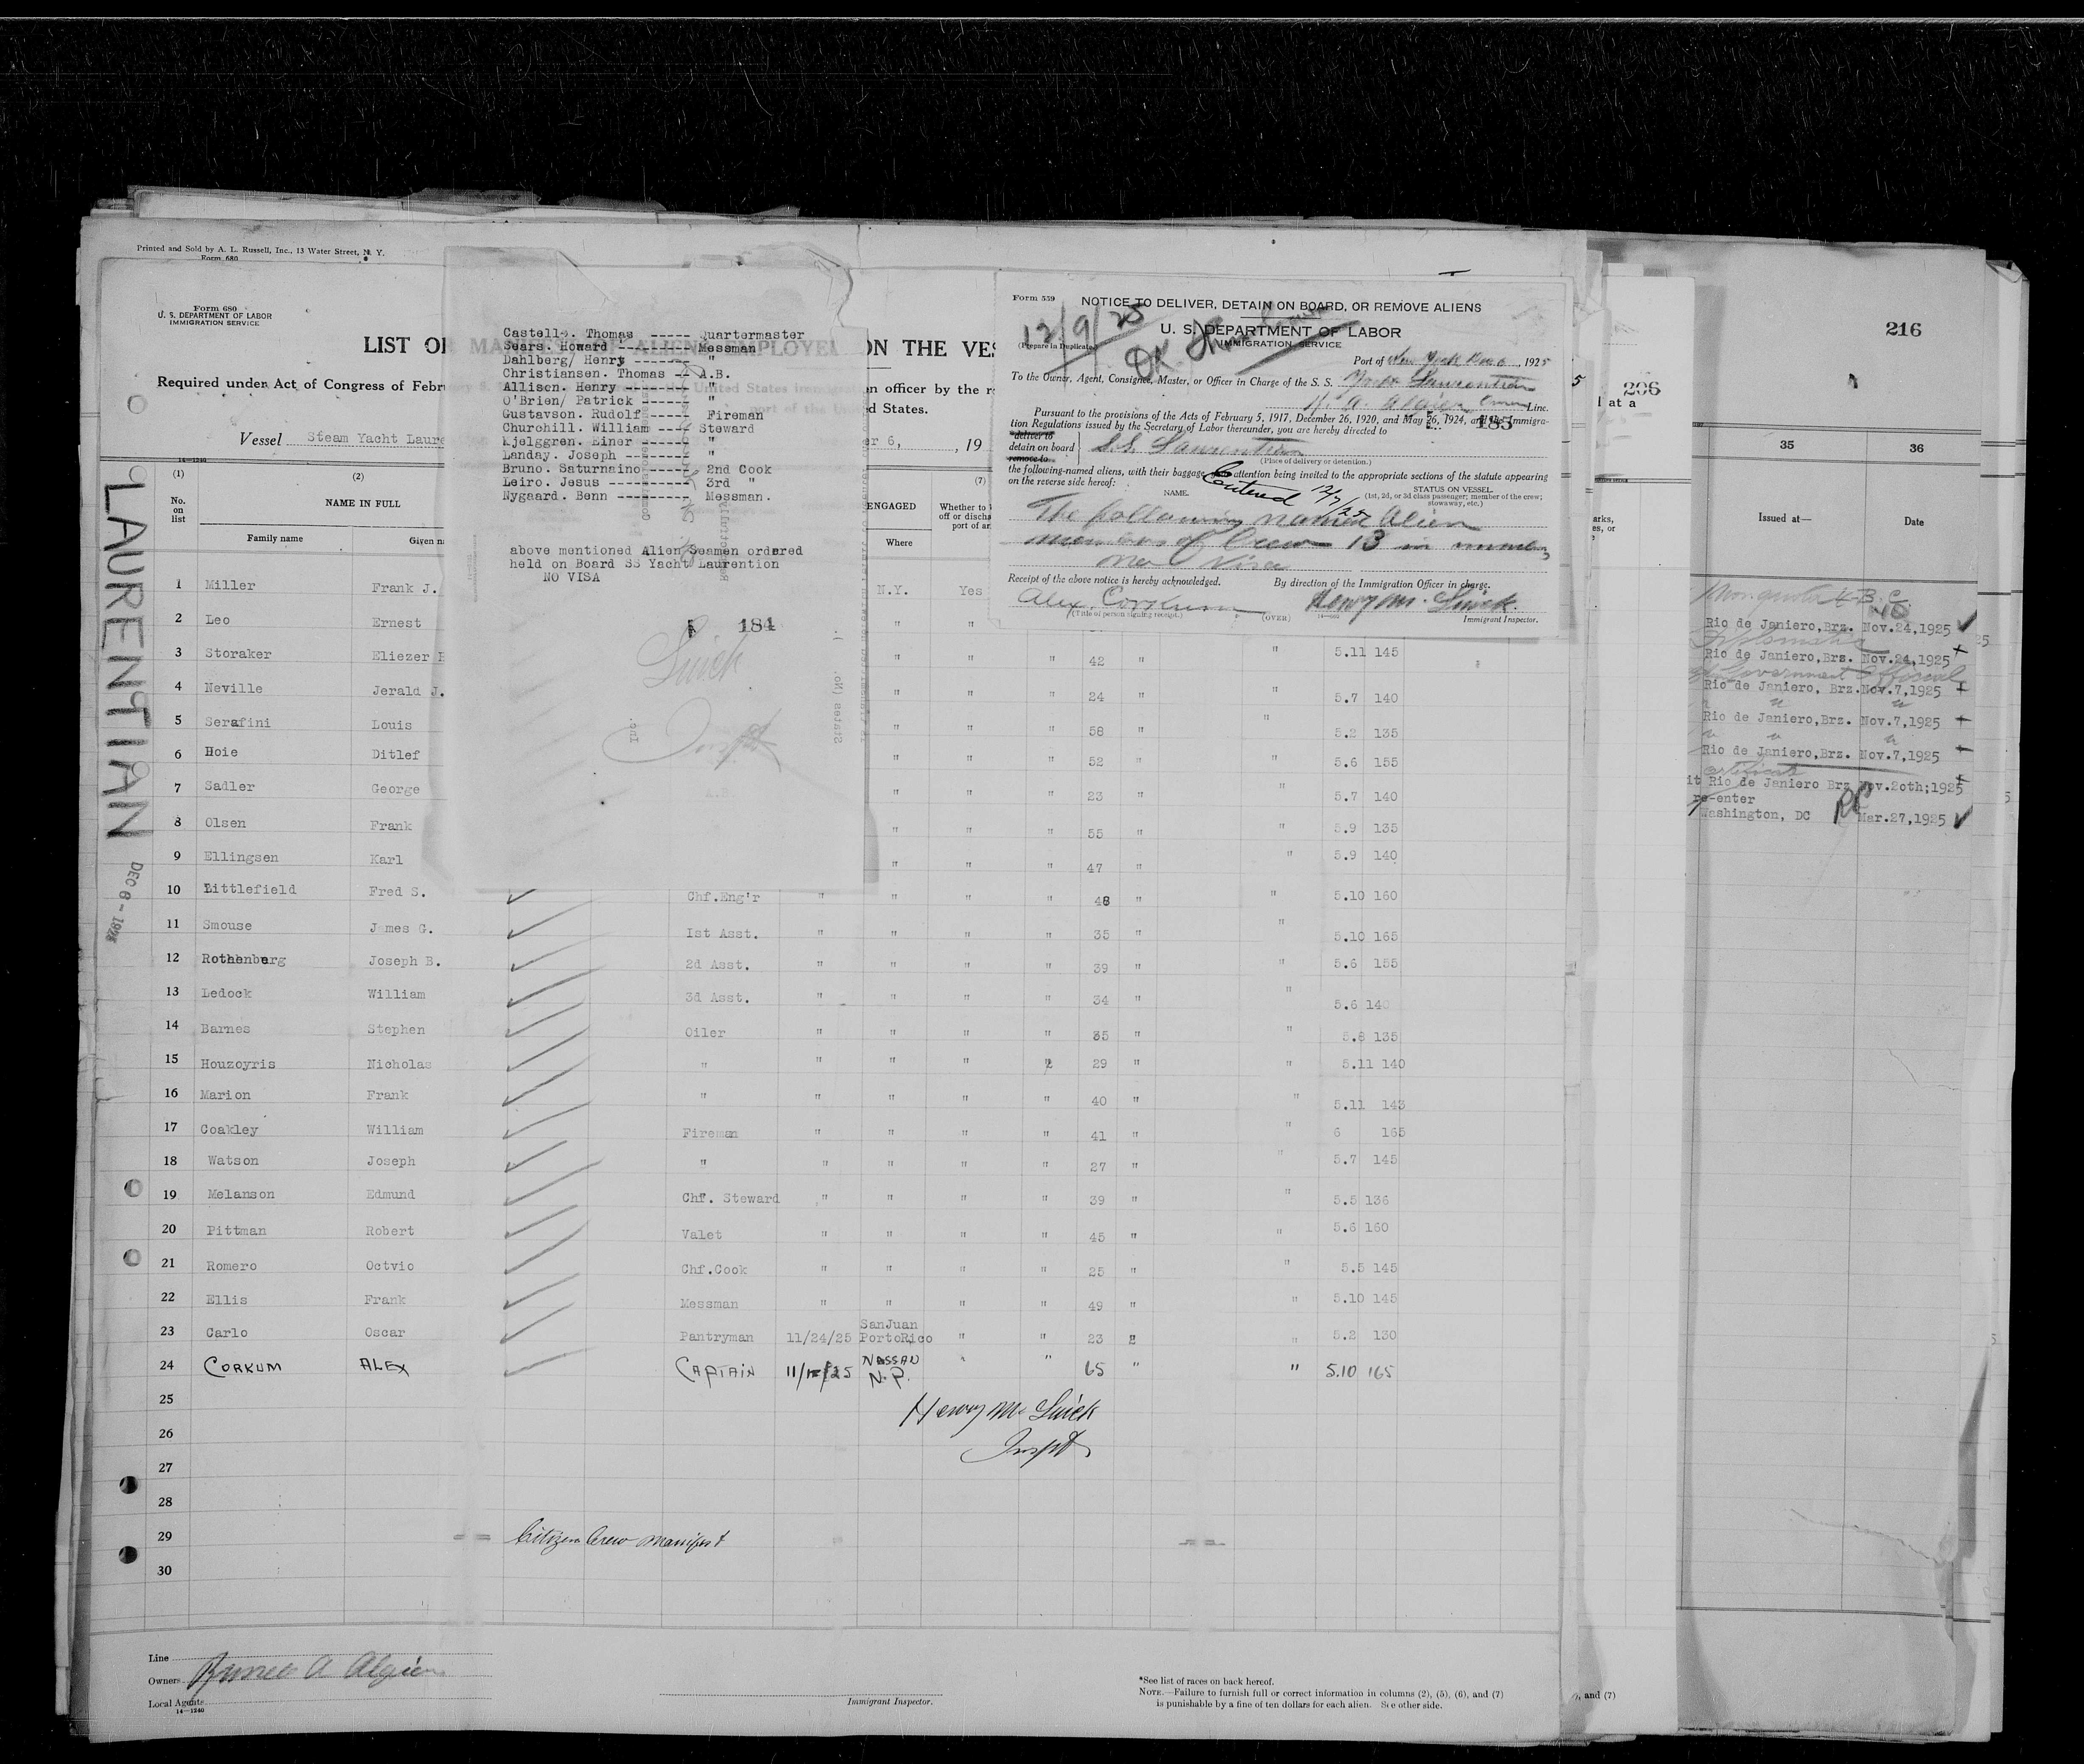 Printed and Sold by A. L. Russell, Inc., 13 Water Street, N. Y.
Form 680
Form 680
U. S. DEPARTMENT OF LABOR
IMMIGRATION SERVICE
LIST OF
ON THE VES
Required under Act of Congress of Febr
n officer by the r
d States.
Vessel Steam Yacht Laure
er 6, , 19
LAURENTIAN
DEC 6 - 1925
Castello. Thomas ----- Quartermaster
Sears. Howard -------- Messman
Dahlberg/ Henry ------ "
Christiansen. Thomas -- A.B.
Allisen. Henry ------- "
O'Brien/ Patrick ------ "
Gustavson. Rudolf ----- Fireman
Churchill. William ---- Steward
Kjelggren. Einer ------ "
Landay. Joseph -------- "
Bruno. Saturnaino ----- 2nd Cook
Leiro. Jesus ---------- 3rd "
Nygaard. Benn --------- Messman.
above mentioned Alien Seamen ordered
held on Board SS Yacht Laurention
NO VISA
184
Quick
Inspt
Form 559
NOTICE TO DELIVER, DETAIN ON BOARD, OR REMOVE ALIENS
12/9/25
OK
U. S. DEPARTMENT OF LABOR
IMMIGRATION SERVICE
(Prepare in Duplicate)
Port of New York Dec 6, 1925
To the Owner, Agent, Consignee, Master, or Officer in Charge of the S. S. Yacht Laurentian
Line.
Pursuant to the provisions of the Acts of February 5, 1917, December 26, 1920, and May 26, 1924, and the Immigra-
tion Regulations issued by the Secretary of Labor thereunder, you are hereby directed to
185
deliver to
detain on board S.S. Laurentian
remove to
(Place of delivery or detention.)
the following-named aliens, with their baggage, attention being invited to the appropriate sections of the statute appearing
on the reverse side hereof:
NAME.
STATUS ON VESSEL.
(1st, 2d, or 3d class passenger; member of the crew;
stowaway, etc.)
12/7/25
The following named Alien
members of Crew 13 in number
no Visa
Receipt of the above notice is hereby acknowledged.
By direction of the Immigration Officer in charge.
Alex. Corkum
Henry M. Quick.
(Title of person signing receipt.)
(OVER)
Immigrant Inspector.
(1) (2) (7)
No. on list
NAME IN FULL
ENGAGED
Whether to
off or discha
port of ar
Family name
Given n
Where
1 Miller Frank J. N.Y. Yes
2 Leo Ernest " "
3 Storaker Eliezer B " " " 42 " " 5.11 145
4 Neville Jerald J. " " " 24 " " 5.7 140
5 Serafini Louis " " " 58 " " 5.2 135
6 Hoie Ditlef " " " 52 " " 5.6 155
7 Sadler George " " " 23 " " 5.7 140
8 Olsen Frank " " " 55 " " 5.9 135
9 Ellingsen Karl " " " 47 " " 5.9 140
10 Littlefield Fred S. Chf.Eng'r " " " " 48 " " 5.10 160
11 Smouse James G. 1st Asst. " " " " 35 " " 5.10 165
12 Rothenberg Joseph B. 2d Asst. " " " " 39 " " 5.6 155
13 Ledock William 3d Asst. " " " " 34 " " 5.6 140
14 Barnes Stephen Oiler " " " " 35 " " 5.8 135
15 Houzoyris Nicholas " " " " " 29 " " 5.11 140
16 Marion Frank " " " " " 40 " " 5.11 143
17 Coakley William Fireman " " " " 41 " " 6 165
18 Watson Joseph " " " " " 27 " " 5.7 145
19 Melanson Edmund Chf. Steward " " " " 39 " " 5.5 136
20 Pittman Robert Valet " " " " 45 " " 5.6 160
21 Romero Octvio Chf.Cook " " " " 25 " " 5.5 145
22 Ellis Frank Messman " " " " 49 " " 5.10 145
23 Carlo Oscar Pantryman 11/24/25 SanJuan PortoRico " " 23 " " 5.2 130
24 CORKUM ALEX CAPTAIN 11/ /25 NASSAU N.P. " " 65 " " 5.10 165
25
Henry M Quick
26
Inspt
27
28
29 Citizen Crew Manifest
30
Line
Owners
Local Agents
14—1240
Immigrant Inspector.
*See list of races on back hereof.
NOTE.—Failure to furnish full or correct information in columns (2), (5), (6), and (7)
is punishable by a fine of ten dollars for each alien. See other side.
, and (7)
206
l at a
216
35 36
Issued at— Date
Rio de Janiero, Brz. Nov.24,1925
Rio de Janiero,Brs. Nov.24,1925
Government Official
Rio de Janiero, Brz. Nov.7,1925
Rio de Janiero,Brz. Nov.7,1925
Rio de Janiero,Brz. Nov.7,1925
it Rio de Janiero Brz Nov.2oth;1925
re-enter
Washington, DC Mar.27,1925